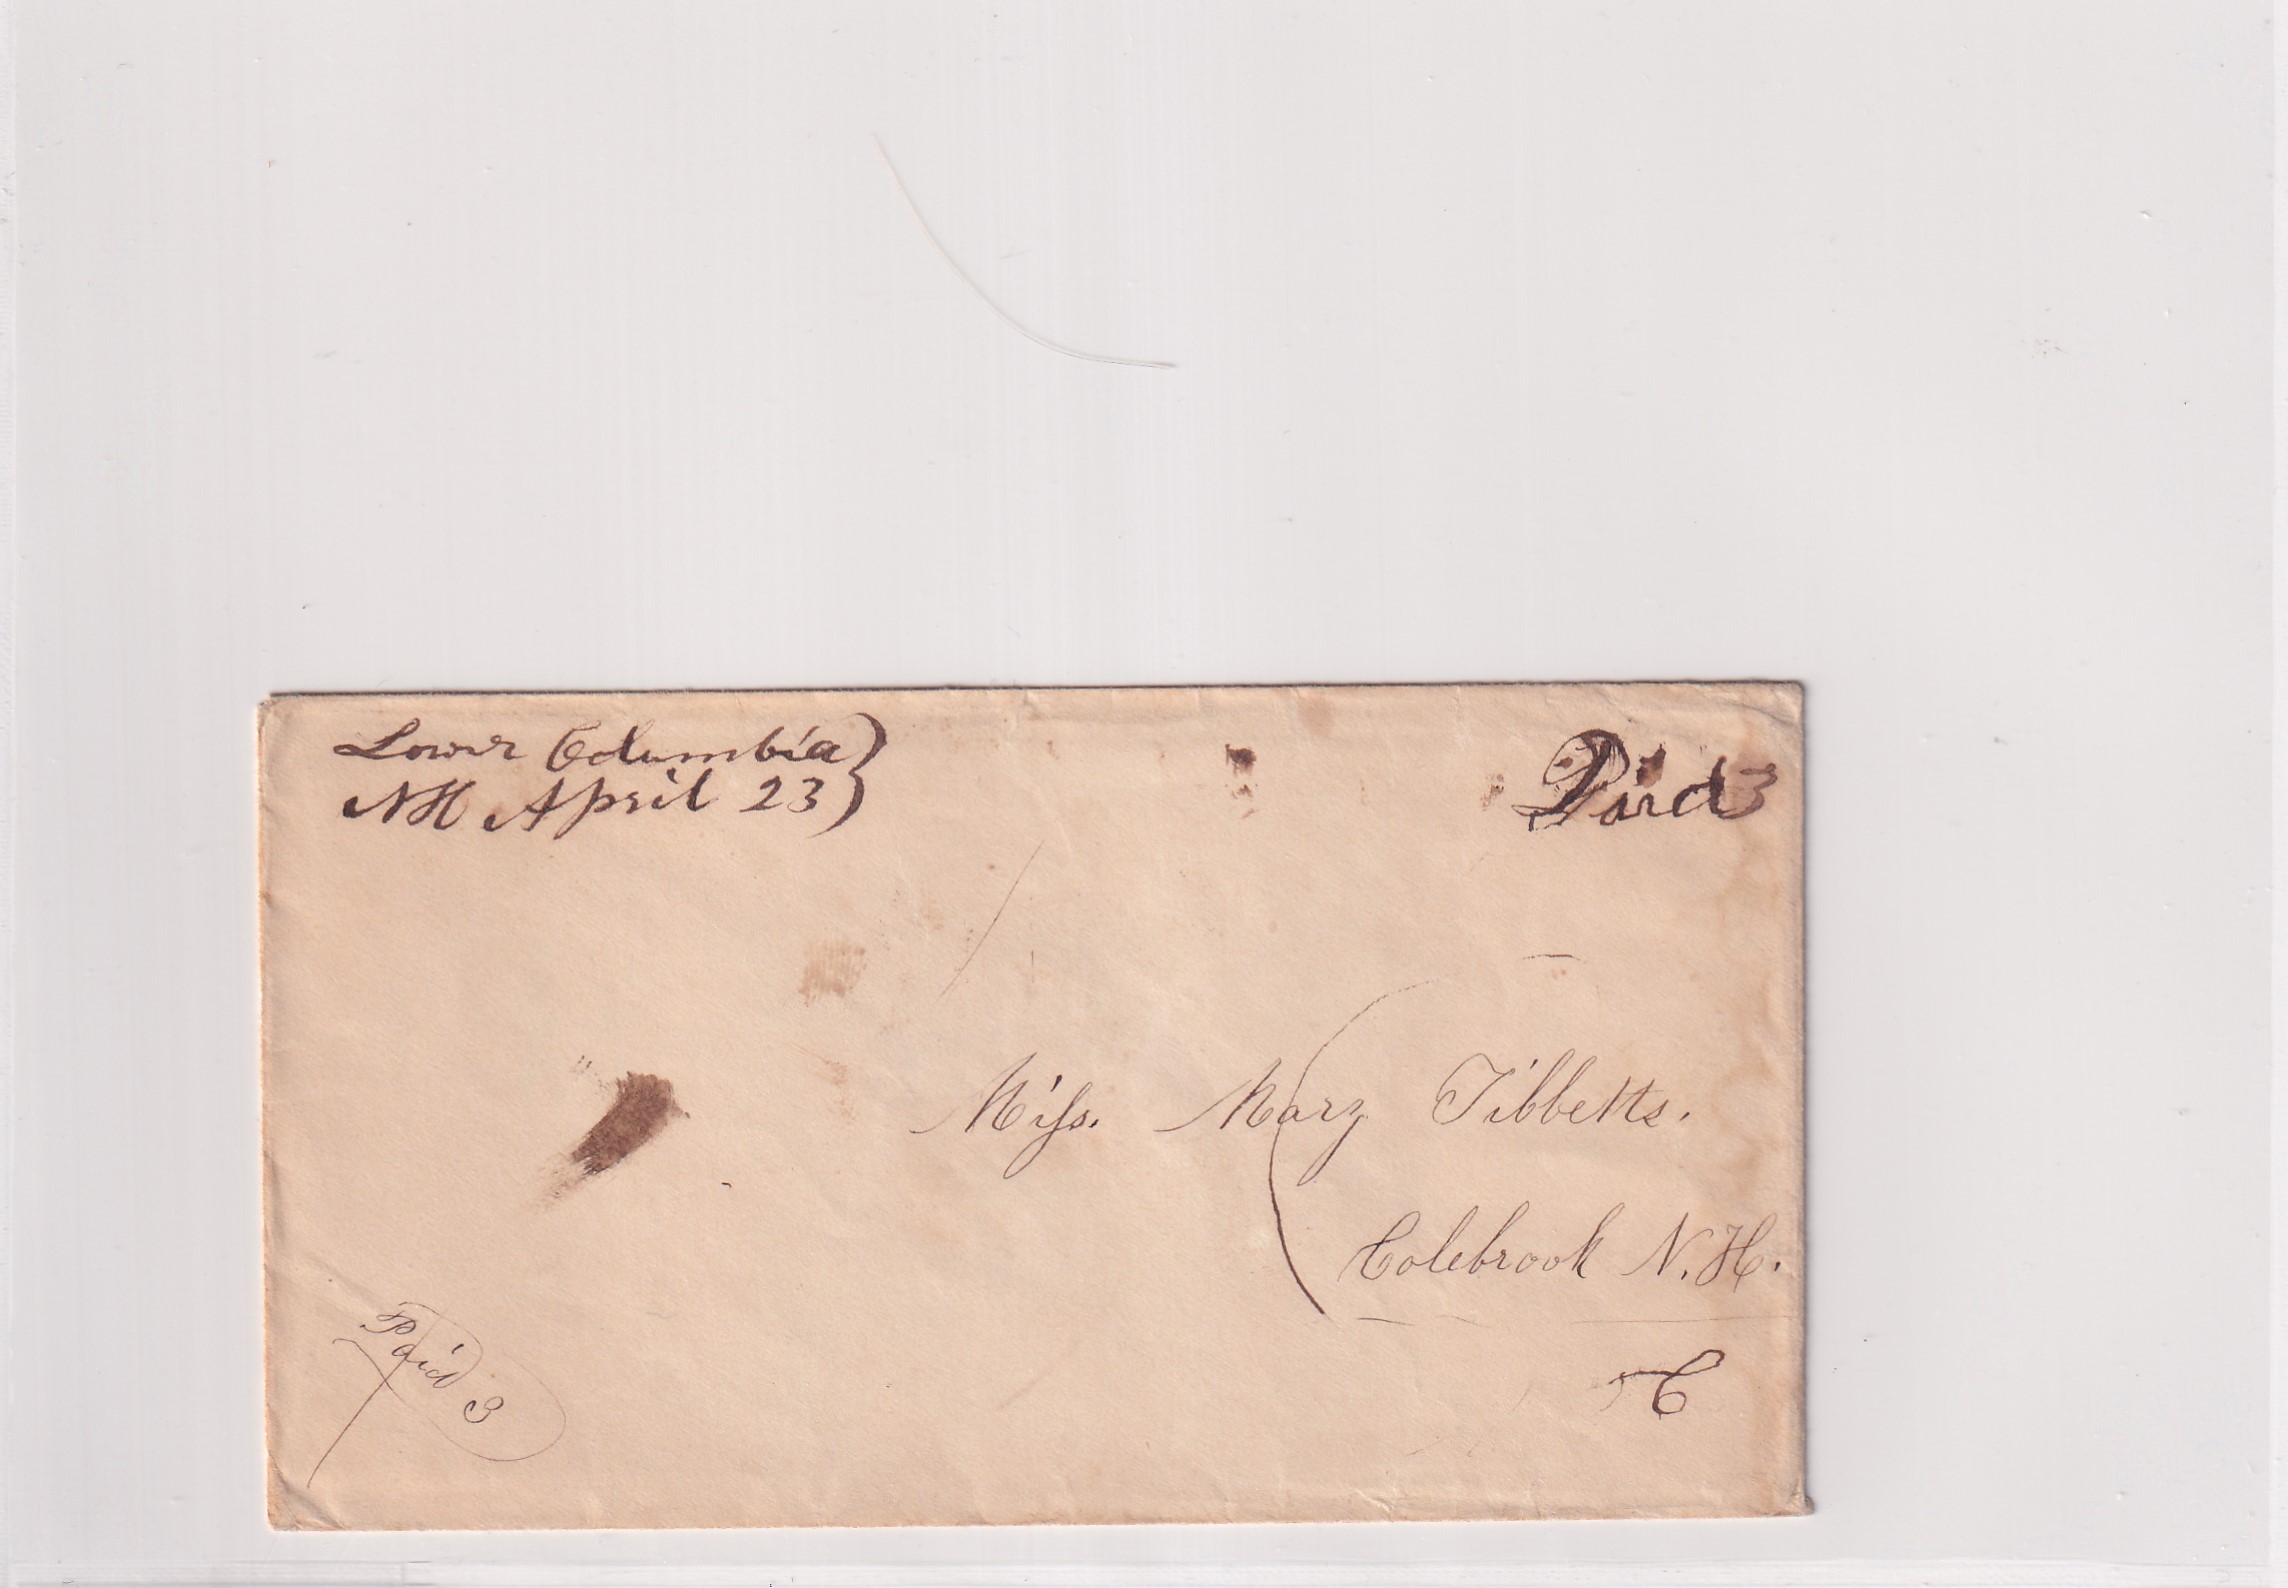 Lower Columbia
NH April 23
Paid 3
Miss. Mary Tibbetts.
Colebrook N.H.
Paid 3
C